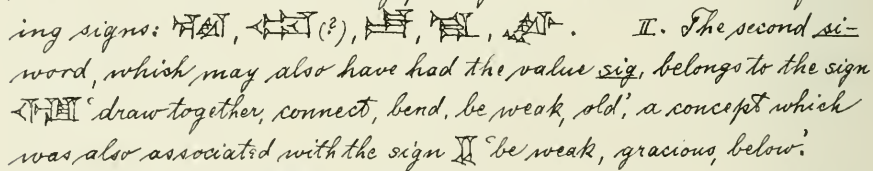 ing signs: , (?), , , . II. The second si-
word, which may also have had the value sig, belongs to the sign
'draw together, connect, bend, be weak, old', a concept which
was also associated with the sign 'be weak, gracious, below'.